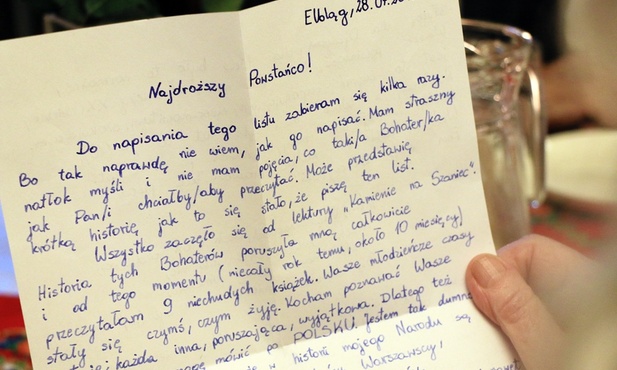 Elbląg, 28.07.20
Najdroższy Powstańco!
Do napisania tego listu zabieram się kilka razy.
Bo tak naprawdę nie wiem, jak go napisać. Mam straszny
natłok myśli i nie mam pojęcia, co taki/a Bohater/ka
jak Pan/i chciałby/aby przeczytać. Może przedstawię
krótką historię, jak to się stało, że piszę ten list.
Wszystko zaczęło się od lektury „Kamienie na Szaniec".
Historia tych Bohaterów poruszyła mną całkowicie
i od tego momentu (niecały rok temu, około 10 miesięcy)
przeczytałam 9 niechudych książek. Wasze młodzieńcze czasy
stały się czymś, czym żyję. Kocham poznawać Wasze
każda inna, poruszająca, wyjątkowa. Dlatego też
mówić po POLSKU. Jestem tak dumna
historii mojego Narodu są
Warszawscy,